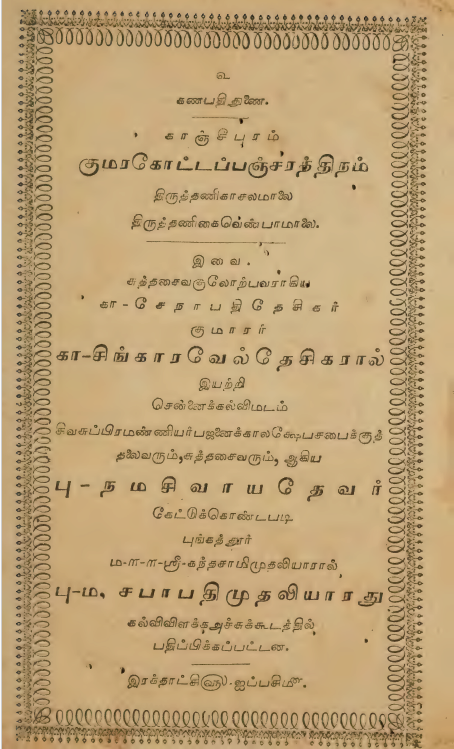 உ
கணபதிதுணை.
காஞ்சிபுரம்
குமரகோட்டப்பஞ்சரத்திநம்
திருத்தணிகாசலமாலை
திருத்தணிகைவெண்பாமாலை.
இவை.
சுத்தசைவகுலோற்பவராகிய
கா-சேநாபதிதேசிகர்
குமாரர்
கா-சிங்காரவேல்தேசிகரால்
இயற்றி
சென்னைக்கல்விமடம்
சிவசுப்பிரமண்ணியர்பஜனைக்காலக்ஷேபசபைக்குத்
தலைவரும்,சுத்தசைவரும், ஆகிய
பு-நமசிவாயதேவர்
கேட்டுக்கொண்டபடி
புங்கத்தூர்
ம-ா-ா-ஸ்ரீ-கந்தசாமிமுதலியாரால்
பு-ம, சபாபதிமுதலியாரது
கல்விவிளக்க அச்சுக்கூடத்தில்
பதிப்பிக்கப்பட்டன.
இரக்தாட்சி௵-ஐப்பசி௴.